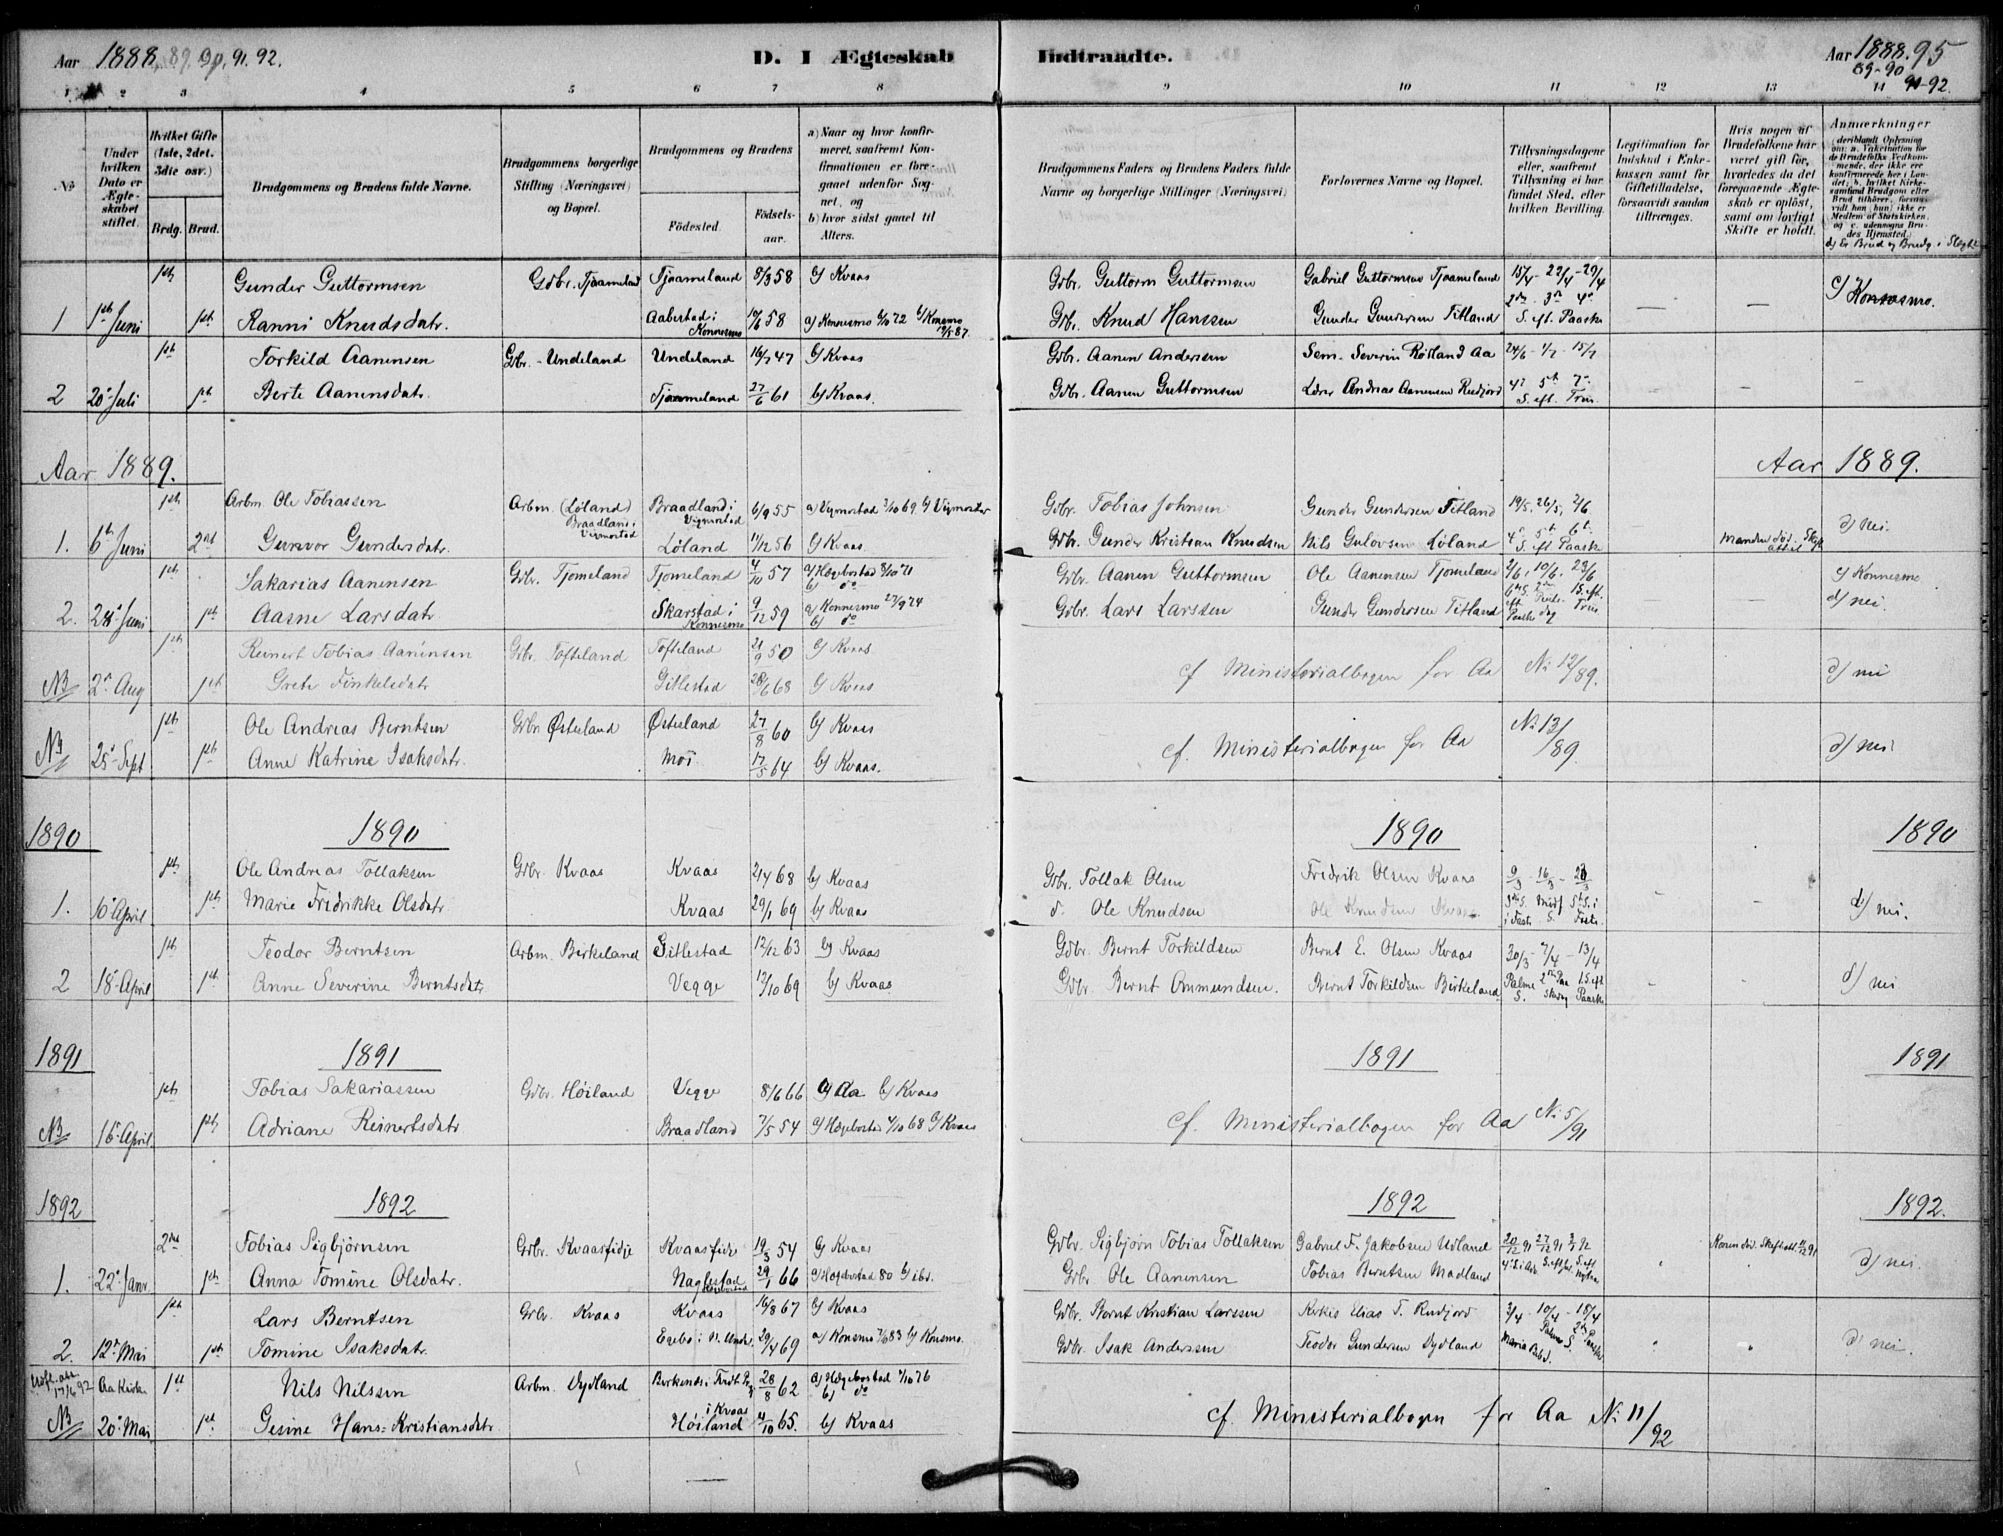 Aar 1888, 89, 90, 91. 92.
D. I Ægteskab Indtraadte.
Aar 1888. 95
89-90
91-92.
1 2 3 4 5 6 7 8 9 10 11 12 13 14
No
Under hvilken Dato er Ægteskabet stiftet.
Hvilket Gifte (1ste, 2det, 3die osv.)
Brdg. Brud.
Brudgommens og Brudens fulde Navne.
Brudgommens borgerlige Stilling (Næringsvei) og Bopæl.
Brudgommens og Brudens
Födested. Födselsaar.
a) Naar og hvor konfirmeret, saafremt Konfirmationen er foregaaet udenfor Sognet, og
b) hvor sidst gaaet til Alters.
Brudgommens Faders og Brudens Faders fulde Navne og borgerlige Stillinger (Næringsvei)
Forlovernes Navne og Bopæl.
Tillysningsdagene eller, saafremt Tillysning ei har fundet Sted, efter hvilken Bevilling.
Legitimation for Indskud i Enkekassen samt for Giftetilladelse, forsaavidt saadan tiltrænges.
Hvis nogen af Brudefolkene har været gift før, hvorledes da det foregaaende Ægteskab er opløst, samt om lovligt Skifte er holdt.
Anmærkninger
(deriblandt Oplysning om: a. Vakcination for de Brudefolks Vedkommende, der ikke ere konfirmerede her i Landet; b. hvilket Kirkesamfund Brudgom eller Brud tilhører, forsaavidt han (hun) ikke er Medlem af Statskirken, og c. udensogns Brudes Hjemsted.)
d) Er Brud og Brudg. i Slegt
1ste Gunder Guttormsen Gdbr. Tjaameland Tjaameland 8/3 58 b) Kvaas Gdbr. Guttorm Guttormsen Gabriel Guttormsen Tjaameland 15/4 - 22/4 - 29/4 c) Konsmo.
1 1ste Juni 1ste Ranni Knudsdatr. Aabestad i Konnesmo 10/6 58 a) Konnesmo 6/10 72 b) Konsmo 19/5 87 Gdbr. Knud Hanssen Gunder Gundersen Titland 2den 3de 4de S. eft. Paaske — —
1ste Torkild Aanensen Gdbr. - Undeland Undeland 16/7 47 b) Kvaas Gdbr. Aanen Anderssen Sem. Severin Røiland Aa 24/6 - 1/7 - 15/7
2 20de Juli 1ste Berte Aanensdatr. Tjaameland 27/6 61 b) Kvaas. Gdbr. Aanen Guttormsen Lærer Andreas Aanensen Rudjord 4de 5te 7de S. eft. Trin. — — —
Aar 1889. Aar 1889.
1ste Arbm. Ole Tobiassen Arbm. (Løland) Braadland i Vigmostad Braadland i Vigmostad 6/9 55 a) Vigmostad 3/10 69 b) Vigmostad Gdbr. Tobias Johnsen Gunder Gundersen Titland 19/5, 26/5, 2/6
1. 6te Juni 2det Gunvor Gundersdatr. Løland 11/12 56 b) Kvaas. Gdbr. Gunder Kristian Knudsen Nils Gulovsen Løland 4de 5te 6te S. eft. Paaske Manden død. d) nei.
1ste Sakarias Aanensen Gdbr. Tjomeland Tjomeland 4/10 57 a) Hægebostad 8/10 71 b) do Gdbr. Aanen Guttormsen Ole Aanensen Tjomeland 2/6, 10/6, 23/6 c) Konnesmo
2. 28de Juni 1ste Aasne Larsdatr. Skarstad i Konnesmo 9/12 59 a) Konnesmo 27/9 74 b) do Gdbr. Lars Larssen Gunder Gundersen Titland 6te S. eft Paaske 2den Pintsedag 1 S. eft. Trin d) nei.
1ste Reinert Tobias Aanensen Gdbr. Tofteland Tofteland 21/9 50 b) Kvaas
NB 2den Aug 1ste Grete Tinkelsdatr Gitlestad 28/6 68 b) Kvaas cf Ministerialbogen for Aa No 12/89. d) nei
1ste Ole Andreas Berntsen Gdbr. Østerland Østerland 27/8 60 b) Kvaas
NB 25de Sept 1ste Anne Katrine Isaksdatr. Moi 17/5 64 b) Kvaas. cf. Ministerialbogen for Aa No 13/89. d) nei
1890 1890 1890 1890
1ste Ole Andreas Tollaksen Gdbr. Kvaas Kvaas 2/4 68 b) Kvaas Gdbr. Tollak Olsen Fredrik Olsen Kvaas 9/3 - 16/3 - 23/3
1. 10de April 1ste Marie Fredrikke Olsdatr. Kvaas 29/1 69 b) Kvaas do Ole Knudsen Ole Knudsen Kvaas 3die S. i Faste Midf. S. 5te S. i Faste d) nei.
1ste Teodor Berntsen Arbm. Birkeland Gitlestad 12/12 63 b) Kvaas Gdbr. Bernt Torkildsen Bernt E. Olsen Kvaas 30/3 - 7/4 - 13/4
2 18de April 1ste Anne Severine Berntsdatr Vegge 12/10 69 b) Kvaas Gdbr. Bernt Ommundsen. Bernt Torkildsen Birkeland Palme S. 2den Paaskedag 1 S. eft Paaske d) nei
1891 1891 1891 1891
1ste Tobias Sakariassen Gdbr. Høiland Vegge 8/6 66 a) Aa b) Kvaas
NB 16de April 1ste Adriane Reinertsdatr Braadland 7/5 54 a) Hægebostad 4/10 68 b) Kvaas cf. Ministerialbogen for Aa No 5/91
1892 1892 1892 1892.
2det Tobias Sigbjørnsen Gdbr. Kvaasfidje Kvaasfidje 19/3 54 b) Kvaas Gdbr. Sigbjørn Tobias Tollaksen Gabriel F. Jakobsen Udland 20/12 91 27/12 91 3/1 92 Konen død. Skifte att. 11/12 91
1. 22de Janr. 1ste Anna Tomine Olsdatr. Naglestad Hægebostad 29/1 66 a) Hægebostad 80 b) ibd. Gdbr Ole Aanensen Tobias Berntsen Madland 4de S. i Adv. S. eft. Jul S. eft Nytaar d) nei.
1ste Lars Berntsen Gdbr. Kvaas Kvaas 16/8 67 b) Kvaas Gdbr. Bernt Kristian Larssen Kirkes. Elias T. Rudjord 3/4 - 10/4 - 18/4
2. 12te Mai 1ste Tomine Isaksdatr. Egebø i N. Undal 29/4 69 a) Konsmo 7/6 83 b) Konsmo. Gdbr. Isak Anderssen Teodor Gundersen Dydland Maria Beb. d. Palme S. 2den Paaske d) nei.
17/6 92 Aa Kirke 1ste Nils Nilssen Arbm. Dydland 28/8 62 a) Hægebostad 1/10 76 b) do
NB 20de Mai 1ste Gesine Hans-Kristiansdatr i Kvaas Høiland 4/10 65. b) Kvaas cf Ministerialbogen for Aa No 11/92